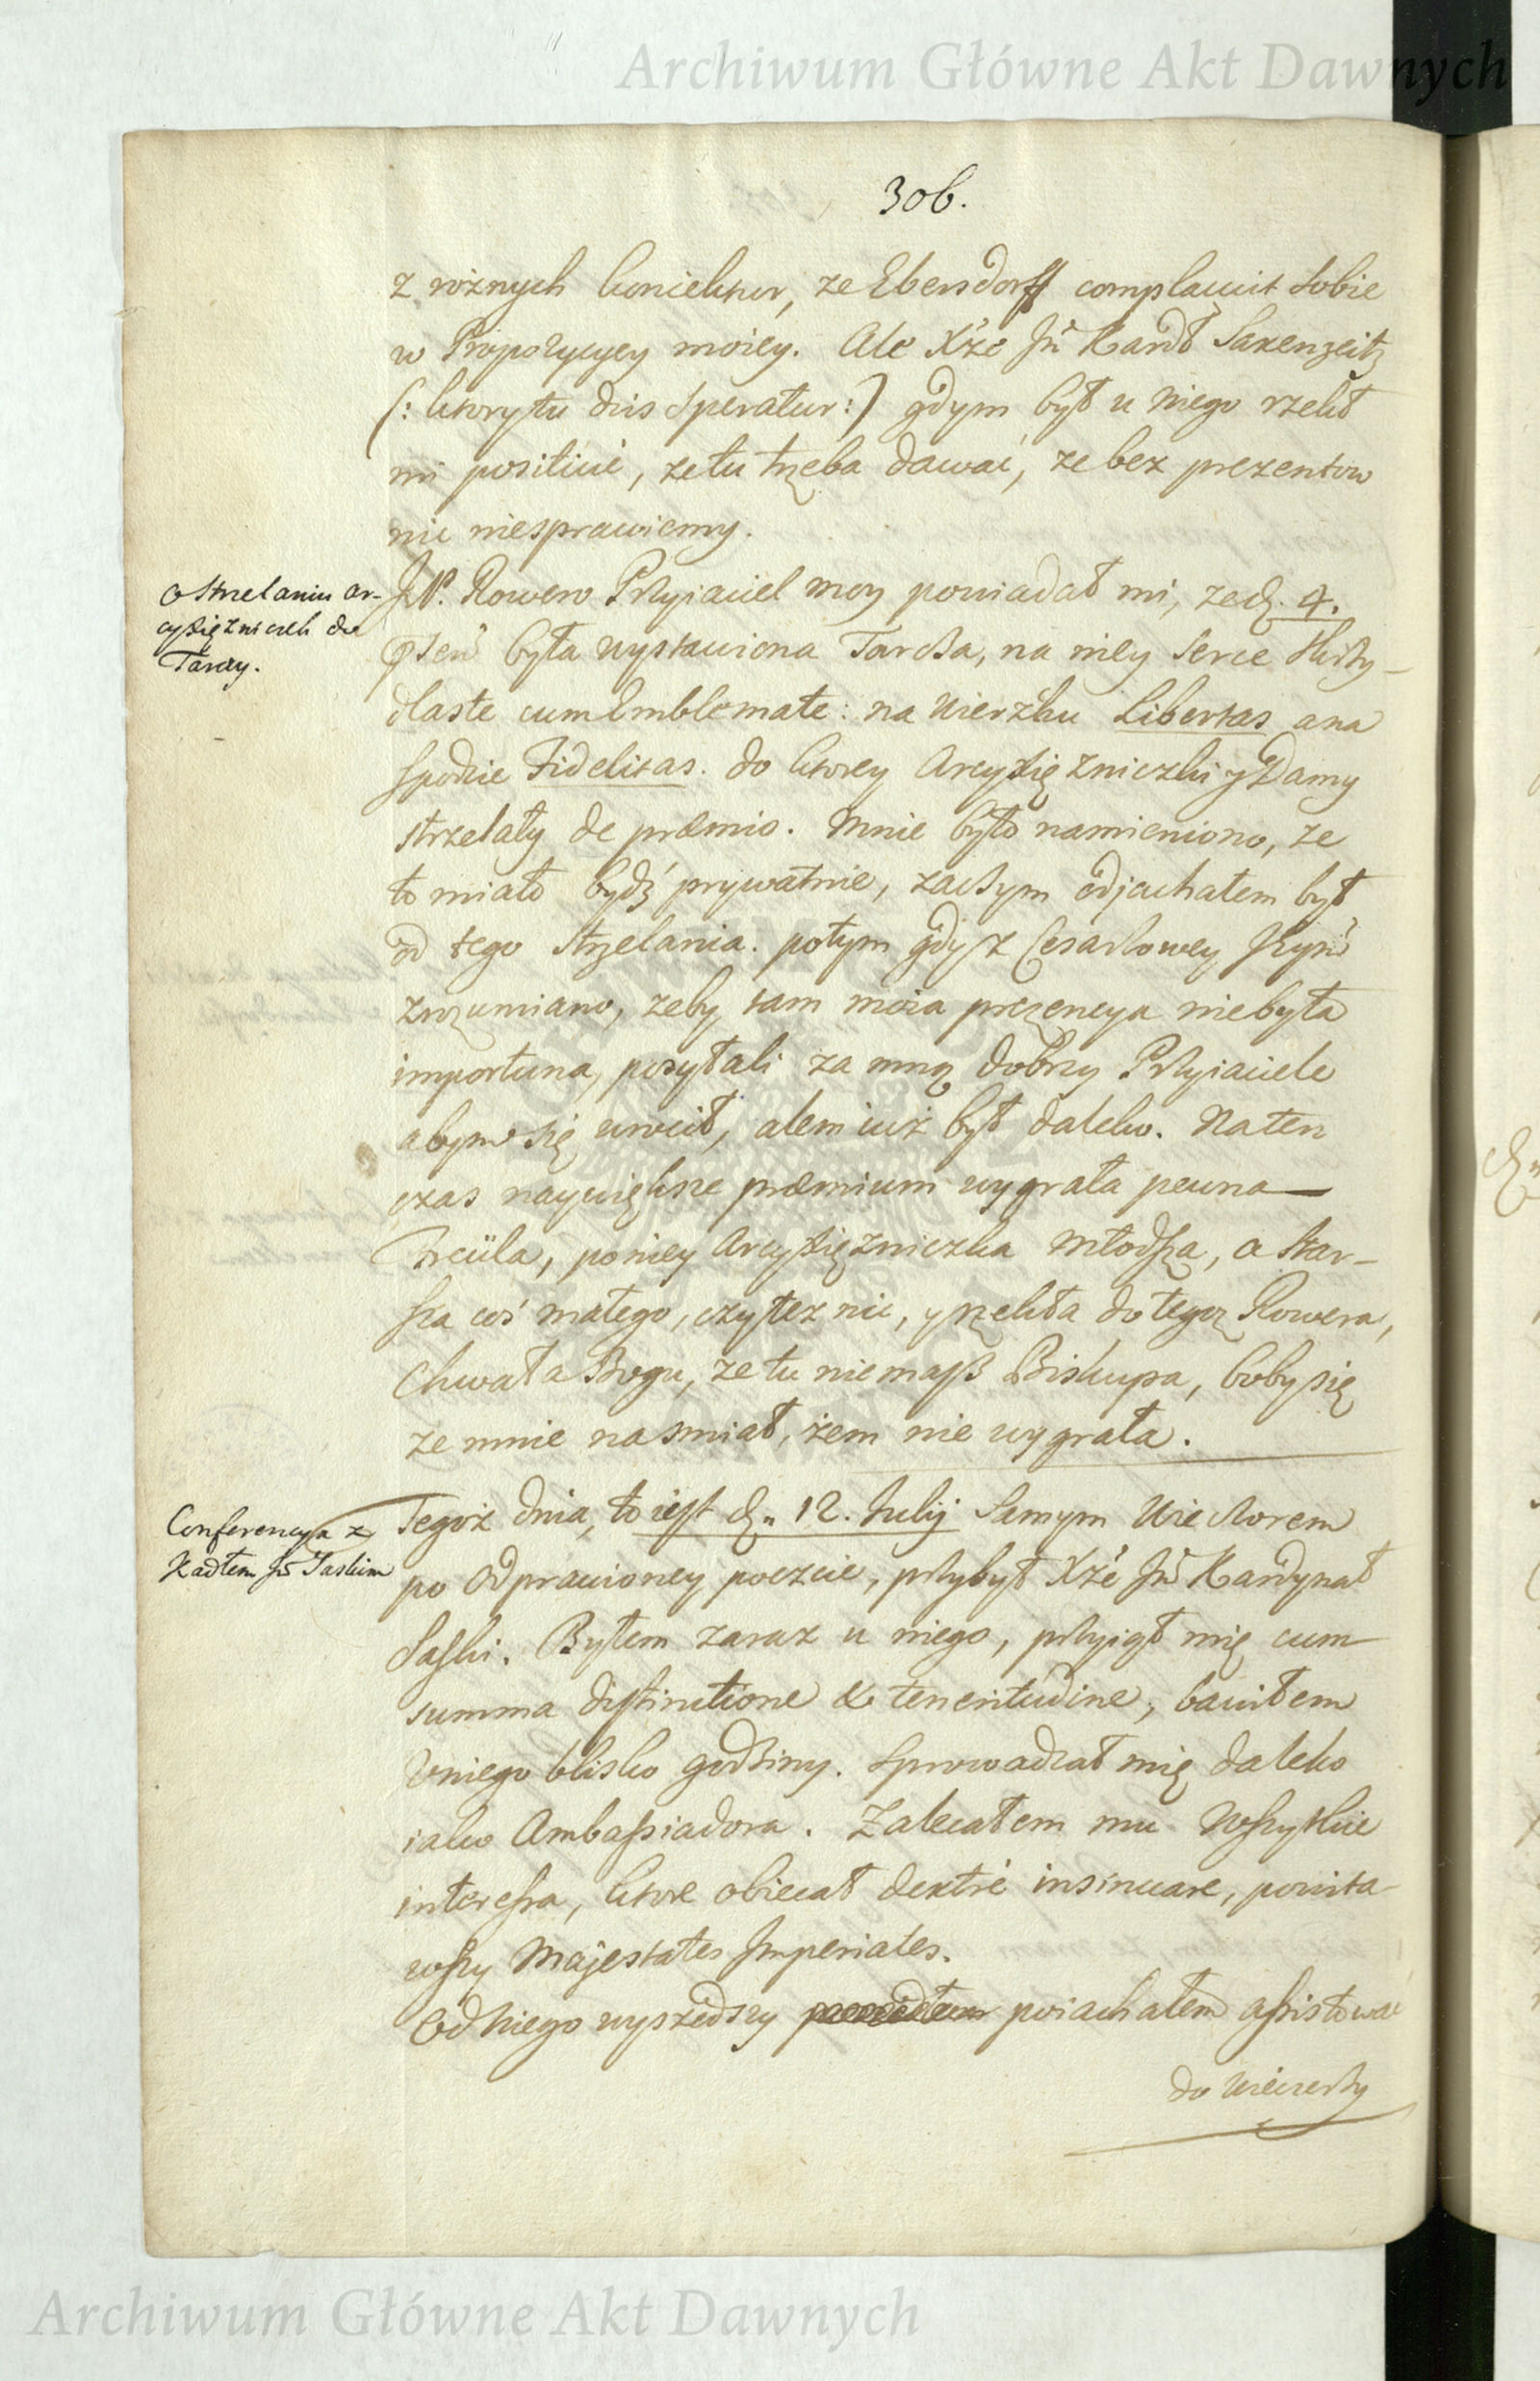 Archiwum Główne Akt Dawnych
306.
z rożnych koniektur, ze Ebersdorff complacuit sobie
w Propozycyey moiey. Ale Xże Jm̃ Kardł Saxenzeitz
(: ktory tu dis speratur:) gdym był u niego rzekł
mi positivè, ze tu trzeba dawać, ze bez prezentow
nic niesprawiemy.
O strzelaniu ar-
cyxiężniczek do
Tarczy.
JP. Rowero Przyiaciel moy powiadał mi, ze d. 4.
była wystawiona Tarcza, na niey serce skrzy-
dlaste cum Emblemate: na wierzchu Libertas a na
spodzie Fidelitas. do ktorey Arcyxiężniczki y Damy
strzelały de præmio. Mnie było namieniono, ze
to miało bydź prywatnie, zaczym odjachałem był
od tego strzelania. potym gdy z Cesarzowey
zrozumiano, zeby tam moia prezencya niebyła
importuna, posyłali za mną dobrzy Przyiaciele
abym się wrócił, alem iuż był daleko. Na ten
czas naywiększe præmium wygrała pewna
Freüla, po niey Arcyxiężniczka młodsza, a star-
sza coś małego, czy tez nic, y rzekła do tegoz Rowera,
Chwała Bogu, ze tu nie masz Biskupa, boby się
ze mnie nasmiał, żem nie wygrała.
Conferencya z
Kadłem Jm̃ Saskim
Tegoż dnia, to iest d. 12. Julij samym Wieczorem
po odprawioney poczcie, przybył Xże Jm̃ Kardynał
Saski. Byłem zaraz u niego, przyiął mię cum
summa distinctione & teneritudine, bawiłem
u niego blisko godziny. sprowadzał mię daleko
iako Ambassiadora. Zalecałem mu wszytkie
interessa, ktore obiecał dextrè insinuare, powita-
wszy Majestates Imperiales.
Od niego wyszedszy poiachałem assistować
do Wieczerzy
Archiwum Główne Akt Dawnych